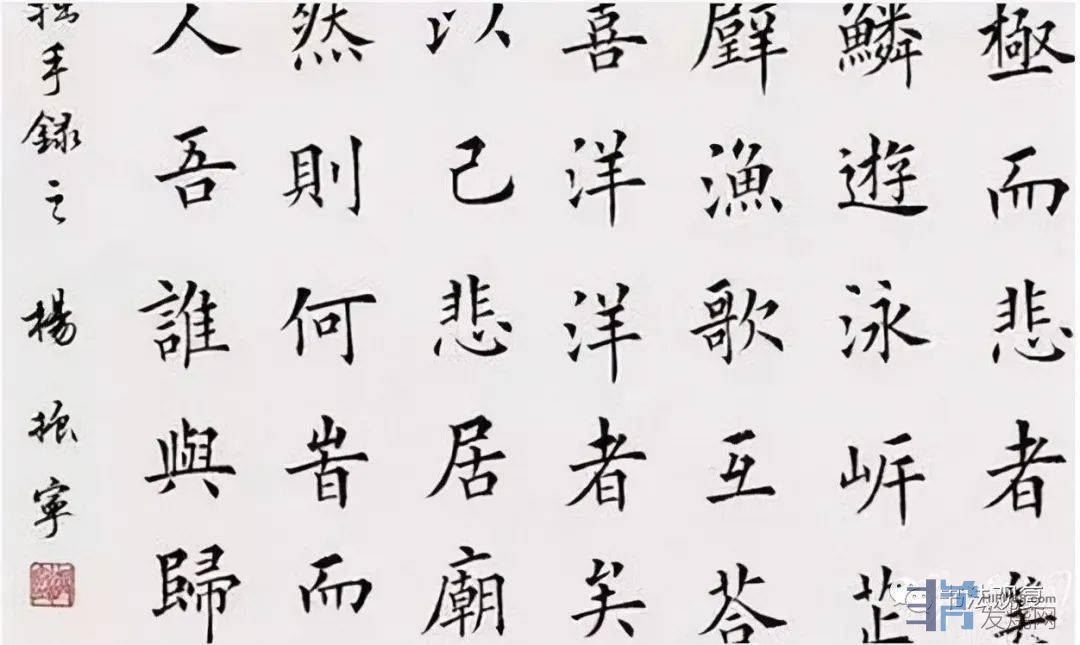 極而悲者矣
鱗遊泳岸芷
璧漁歌互荅
喜洋洋者矣
以己悲居廟
然則何旹而
人吾誰與歸
手録之 楊振寧
发烧网